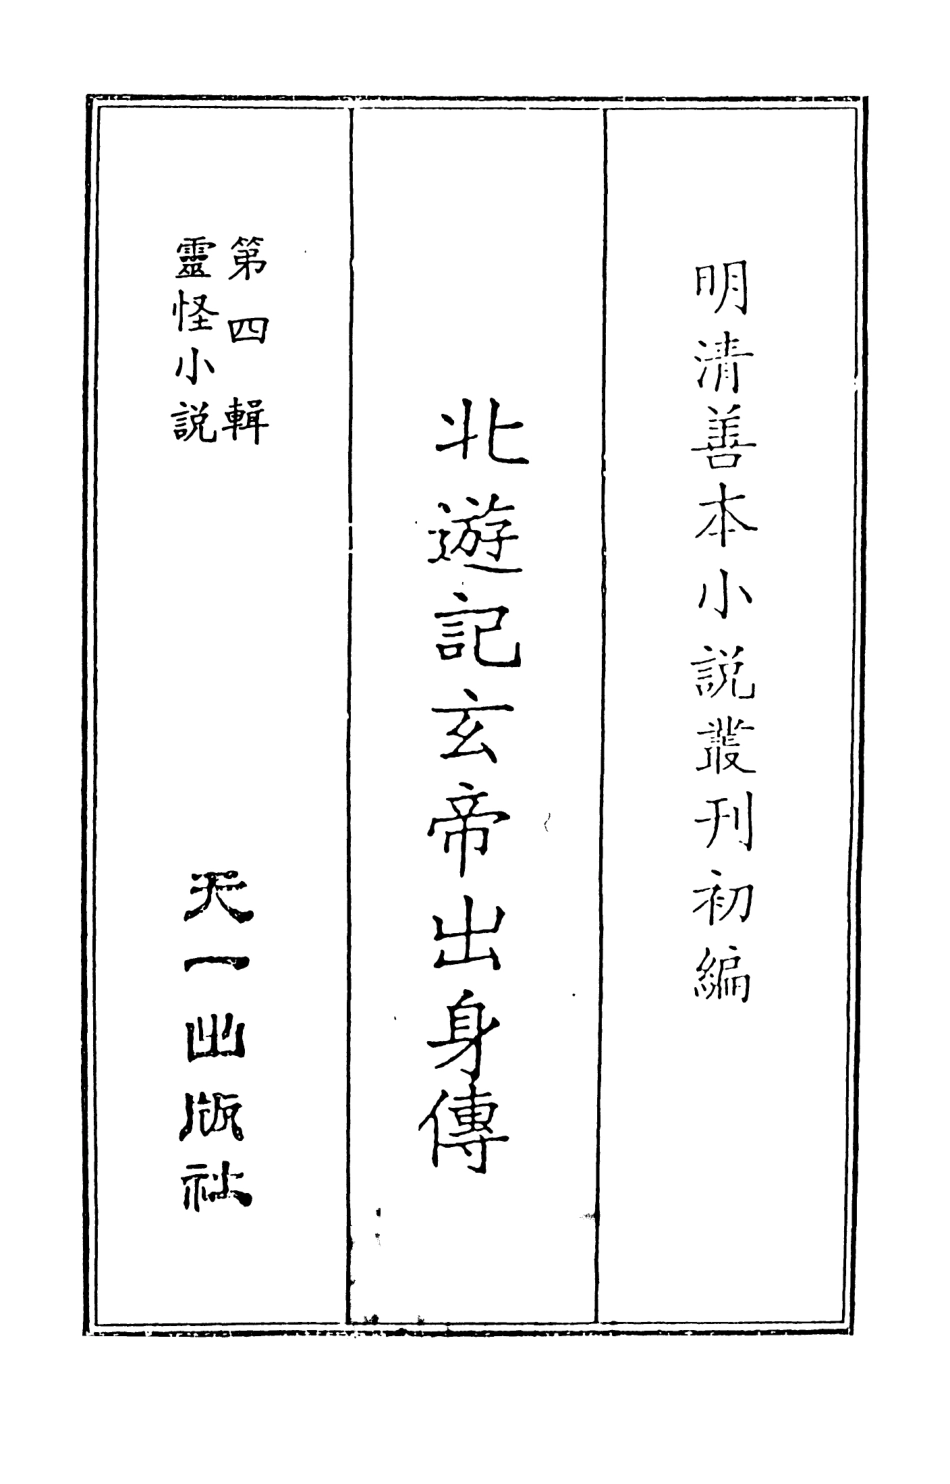 明清善本小説叢刊初編
北遊記玄帝出身傳
第四輯
靈怪小説
天一出版社